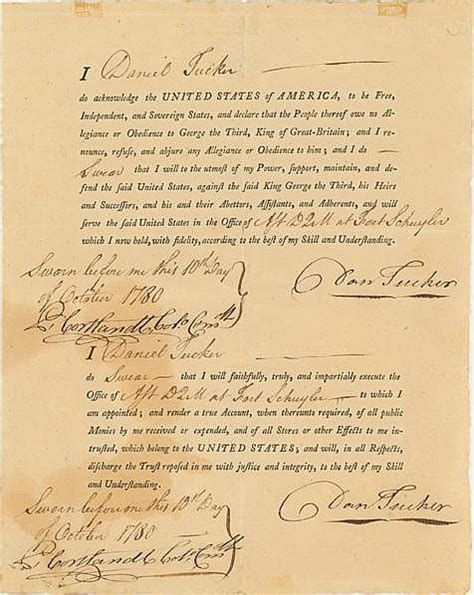 I Daniel Tucker
do acknowledge the UNITED STATES of AMERICA, to be Free,
Independent, and Sovereign States, and declare that the People thereof owe no Al-
legiance or Obedience to George the Third, King of Great-Britain; and I re-
nounce, refuse, and abjure any Allegiance or Obedience to him; and I do
Swear that I will to the utmost of my Power, support, maintain, and de-
fend the said United States, against the said King George the Third, his Heirs
and Successors, and his and their Abettors, Assistants, and Adherents, and will
serve the said United States in the Office of Ast D2M at Fort Schuyler
which I now hold, with fidelity, according to the best of my Skill and Understanding.
Sworn before me this 10th Day
of October 1780
Dan Tucker
P. Cortlandt Colo. Comdt
I Daniel Tucker
do Swear that I will faithfully, truly, and impartially execute the
Office of Ast D2M at Fort Schuyler to which I
am appointed; and render a true Account, when thereunto required, of all public
Monies by me received or expended, and of all Stores or other Effects to me in-
trusted, which belong to the UNITED STATES; and will, in all Respects,
discharge the Trust reposed in me with justice and integrity, to the best of my Skill
and Understanding.
Sworn before me this 10th Day
of October 1780
Dan Tucker
P. Cortlandt Colo. Comdt